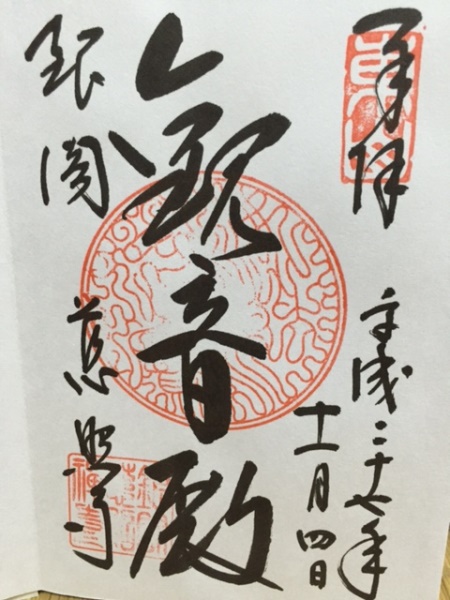 奉拝
平成二十七年
十一月四日
観音殿
銀閣
慈照寺